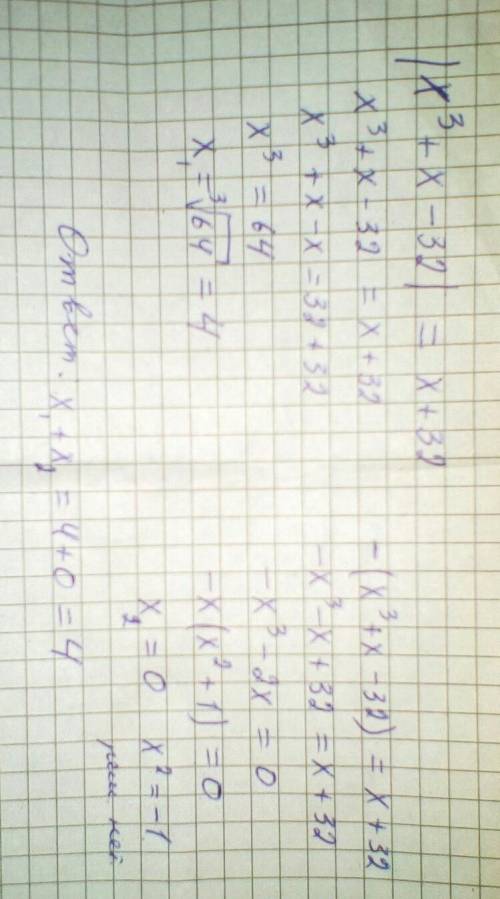 |x³ + x − 32| = x + 32
x³ + x − 32 = x + 32
x³ + x − x = 32 + 32
x³ = 64
x₁ = ³√64 = 4
−(x³ + x − 32) = x + 32
−x³ − x + 32 = x + 32
−x³ − 2x = 0
−x(x² + 1) = 0
x₂ = 0 x² = −1
реш. нет
Ответ: x₁ + x₂ = 4 + 0 = 4